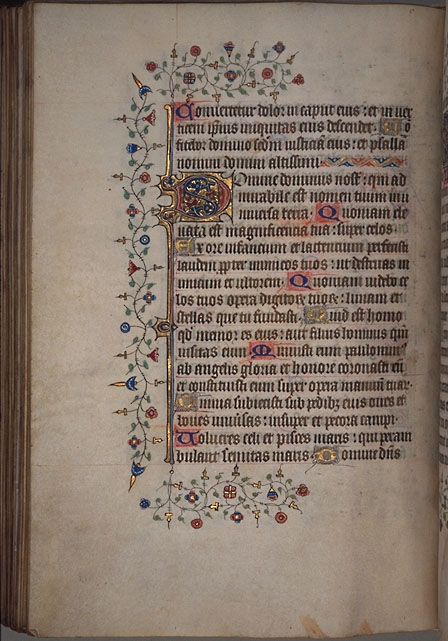 Convertetur dolor in caput eius: et in ver
ticem ipsius iniquitas eius descendet. Co
fitebor domino scdm iusticia eius: et psalla
nomini domini altissimi
Domine dominus nostr: qm ad
mirabile est nomen tuum in u
niversa terra. Quoniam ele
vata est magnificentia tua: super celos
Ex ore infancium et lactencium perfecisti
laudem ppter inimicos tuos: ut destruas in
imicum et ultorem. Quoniam videbo ce
los tuos opera digitor tuor: lunam et
stellas que tu fundasti. Quid est homo
qd memor es eius: aut filius hominis qm
visitas eum. Minuisti eum paulominus
ab angelis gloria et honore coronasti eu
et constituisti eum super opera manuu tuar.
Omnia subiecisti sub pedibz eius oves et
boves universas: insuper et pecora campi.
Volucres celi et pisces maris: qui peram
bulant semitas maris. Domine dns